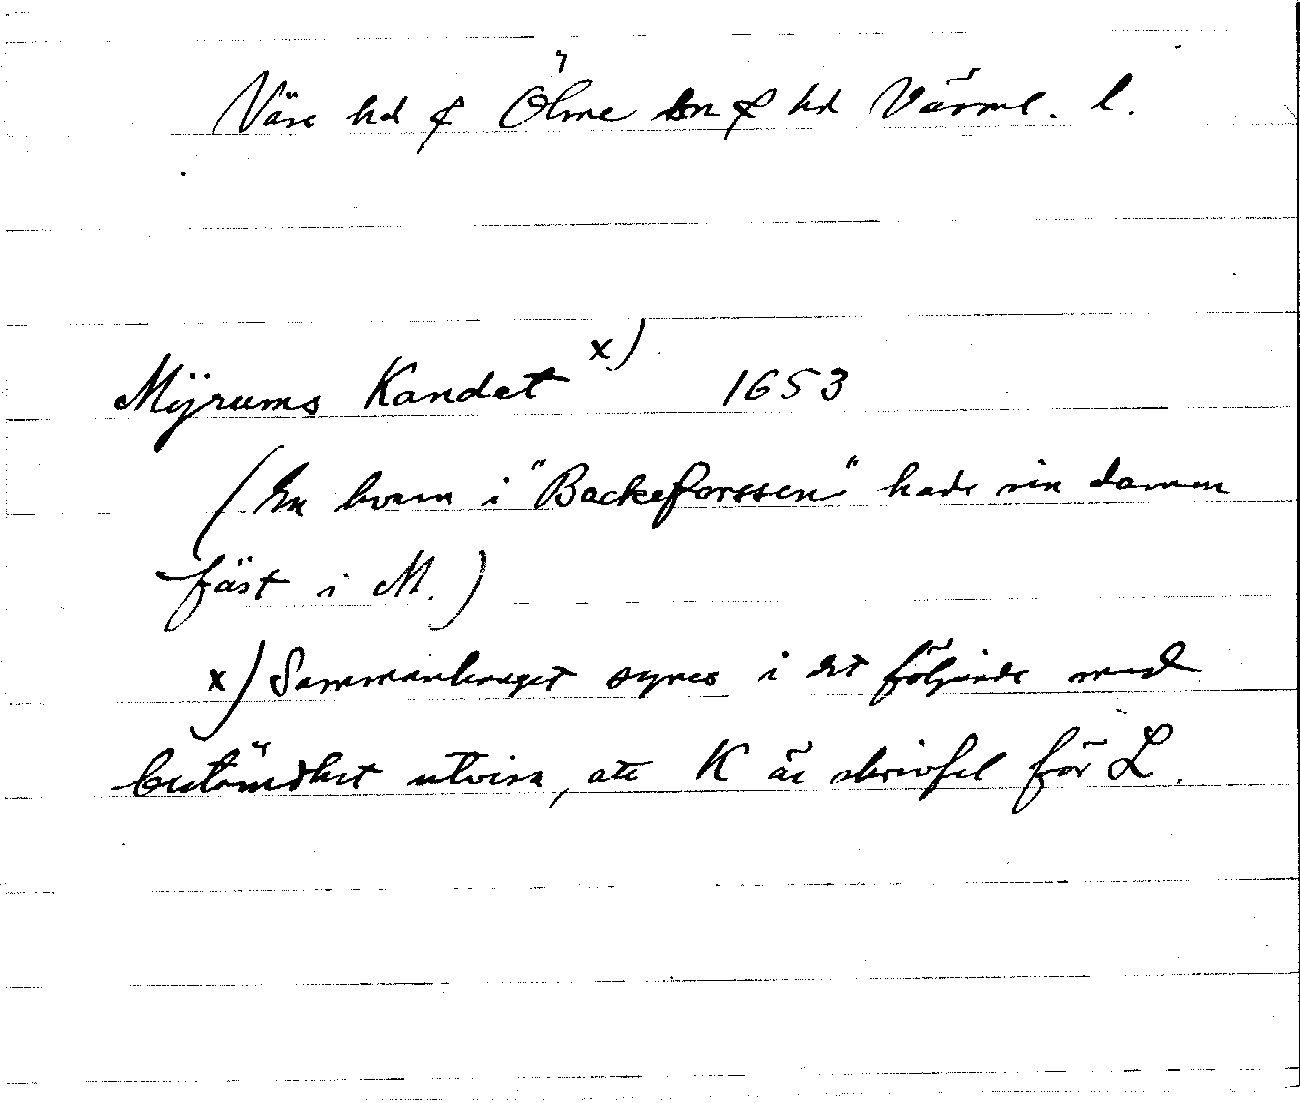 Väse hd & Ölme sn & hd Värml. l.
Mÿrums Kandet x) 1653
(En kvarn i "Backeforssen" hade sin damm
fäst i M.)
x) Sammanhanget synes i det följande med
bestämdhet utvisa, att K är skrivfel för L.